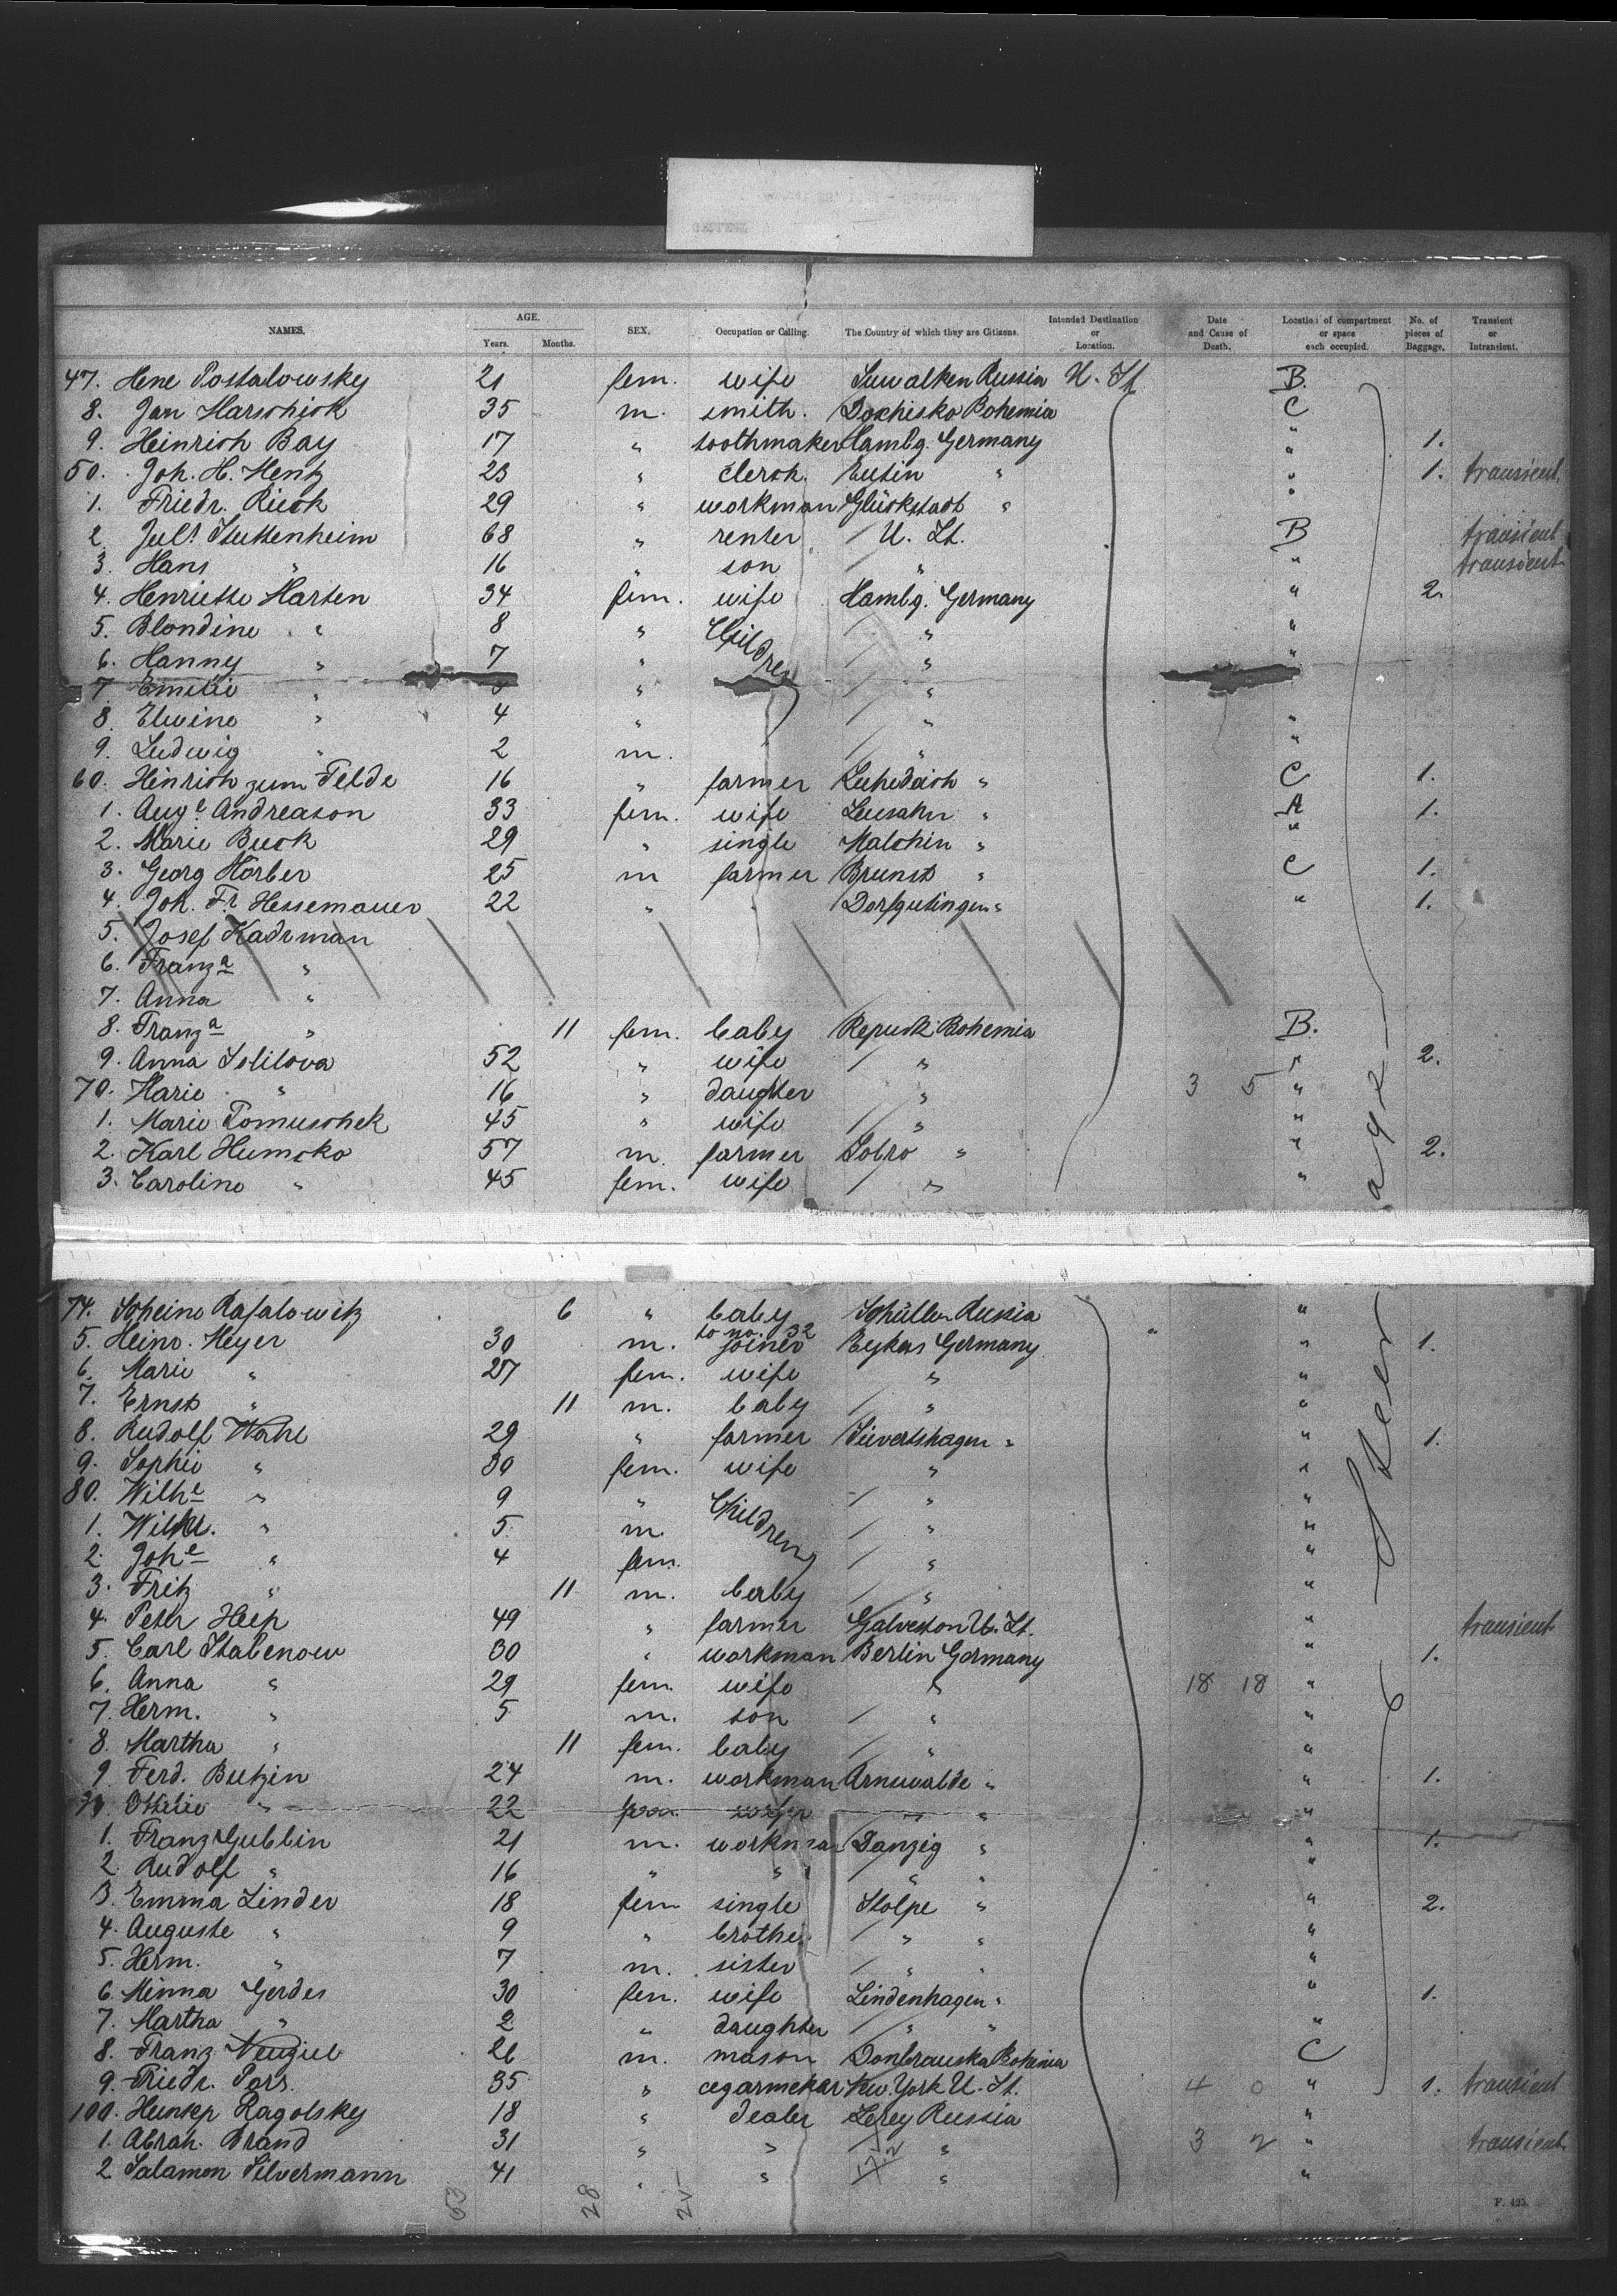 NAMES. AGE. Years. Months. SEX. Occupation or Calling. The Country of which they are Citizens. Intended Destination or Location. Date and Cause of Death. Location of compartment or space each occupied. No. of pieces of Baggage. Transient or Intransient.
47. Hene Postalowsky 21 fem. wife Suwalken Russia U. St. B.
8. Jan Harschick 35 m. smith. Bohemia C
9. Heinrich Bay 17 " toothmaker Hambg. Germany " 1.
50. Joh. H. Hentz 23 " clerck. Eutin " " 1. transient.
1. Friedr. Rieck 29 " workman Glückstadt " "
2. Jul. Stuttenheim 68 " renter U. St. B transient
3. Hans " 16 " son " " transient
4. Henriette Harten 34 fem. wife Hambg. Germany " 2.
5. Blondine " 8 " Children " "
6. Hanny " 7 " " "
7 Emilie " " "
8. Elwine " 4 " " "
9. Ludwig " 2 m. " "
60. Hinrich zum Felde 16 " farmer Luhedeich " C 1.
1. Auge Andreason 33 fem. wife Lensahn " A 1.
2. Marie Buck 29 " single Malchin " "
3. Georg Hörber 25 m farmer Brunst " C 1.
4. Joh. Fr. Hessemauer 22 " " Dorfgutingen " " 1.
5. Josef Kadrman
6. Franza "
7. Anna "
8. Franza " 11 fem. baby Bohemia B.
9. Anna 52 " wife " " 2.
70. Marie " 16 " daughter " 3 5 "
1. Marie Tomuschek 45 " wife " "
2. Karl Humcko 57 m. farmer Sobro " " 2.
3. Caroline " 45 fem. wife " "
74. Scheine Rafalowitz 6 " baby Russia "
to no. 32
5. Heinr. Meyer 30 m. joiner Germany " 1.
6. Marie " 27 fem. wife " "
7. Ernst " 11 m. baby " "
8. Rudolf Wahl 29 " farmer Sievertshagen " " 1.
9. Sophie " 30 fem. wife " "
80. Wilhe " 9 " Children " "
1. Wilh. " 5 m. " "
2. Johe " 4 fem. " "
3. Fritz " 11 m. baby " "
4. Peter Heep 49 " farmer Galveston U. St. " transient
5. Carl Stabenow 30 " workman Berlin Germany " 1.
6. Anna " 29 fem. wife " 18 18 "
7. Herm. " 5 m. son " "
8. Martha " 11 fem. baby " "
9 Ferd. Butzin 24 m. workman Arnswalde " " 1.
Ottilie " 22 fem. wife " " "
1. Franz Gublin 21 m. workman Danzig " " 1.
2. Rudolf " 16 " " " " "
3. Emma Linder 18 fem single Stolpe " " 2.
4. Auguste " 9 " brother " " "
5. Herm. " 7 m. sister " " "
6. Minna Gerdes 30 fem. wife Lindenhagen " " 1.
7. Martha " 2 " daughter " " "
8. Franz 26 m. mason Bohemia C
9. Friedr. Pars. 35 " cegarmekar New. York U. St. 4 0 " 1. transient
100. Ragolsky 18 " dealer Russia "
1. Abrah. Brand 31 " " " 3 2 " transient
2 Salamon Silvermann 41 " " " "
53 28 25
F. 425.